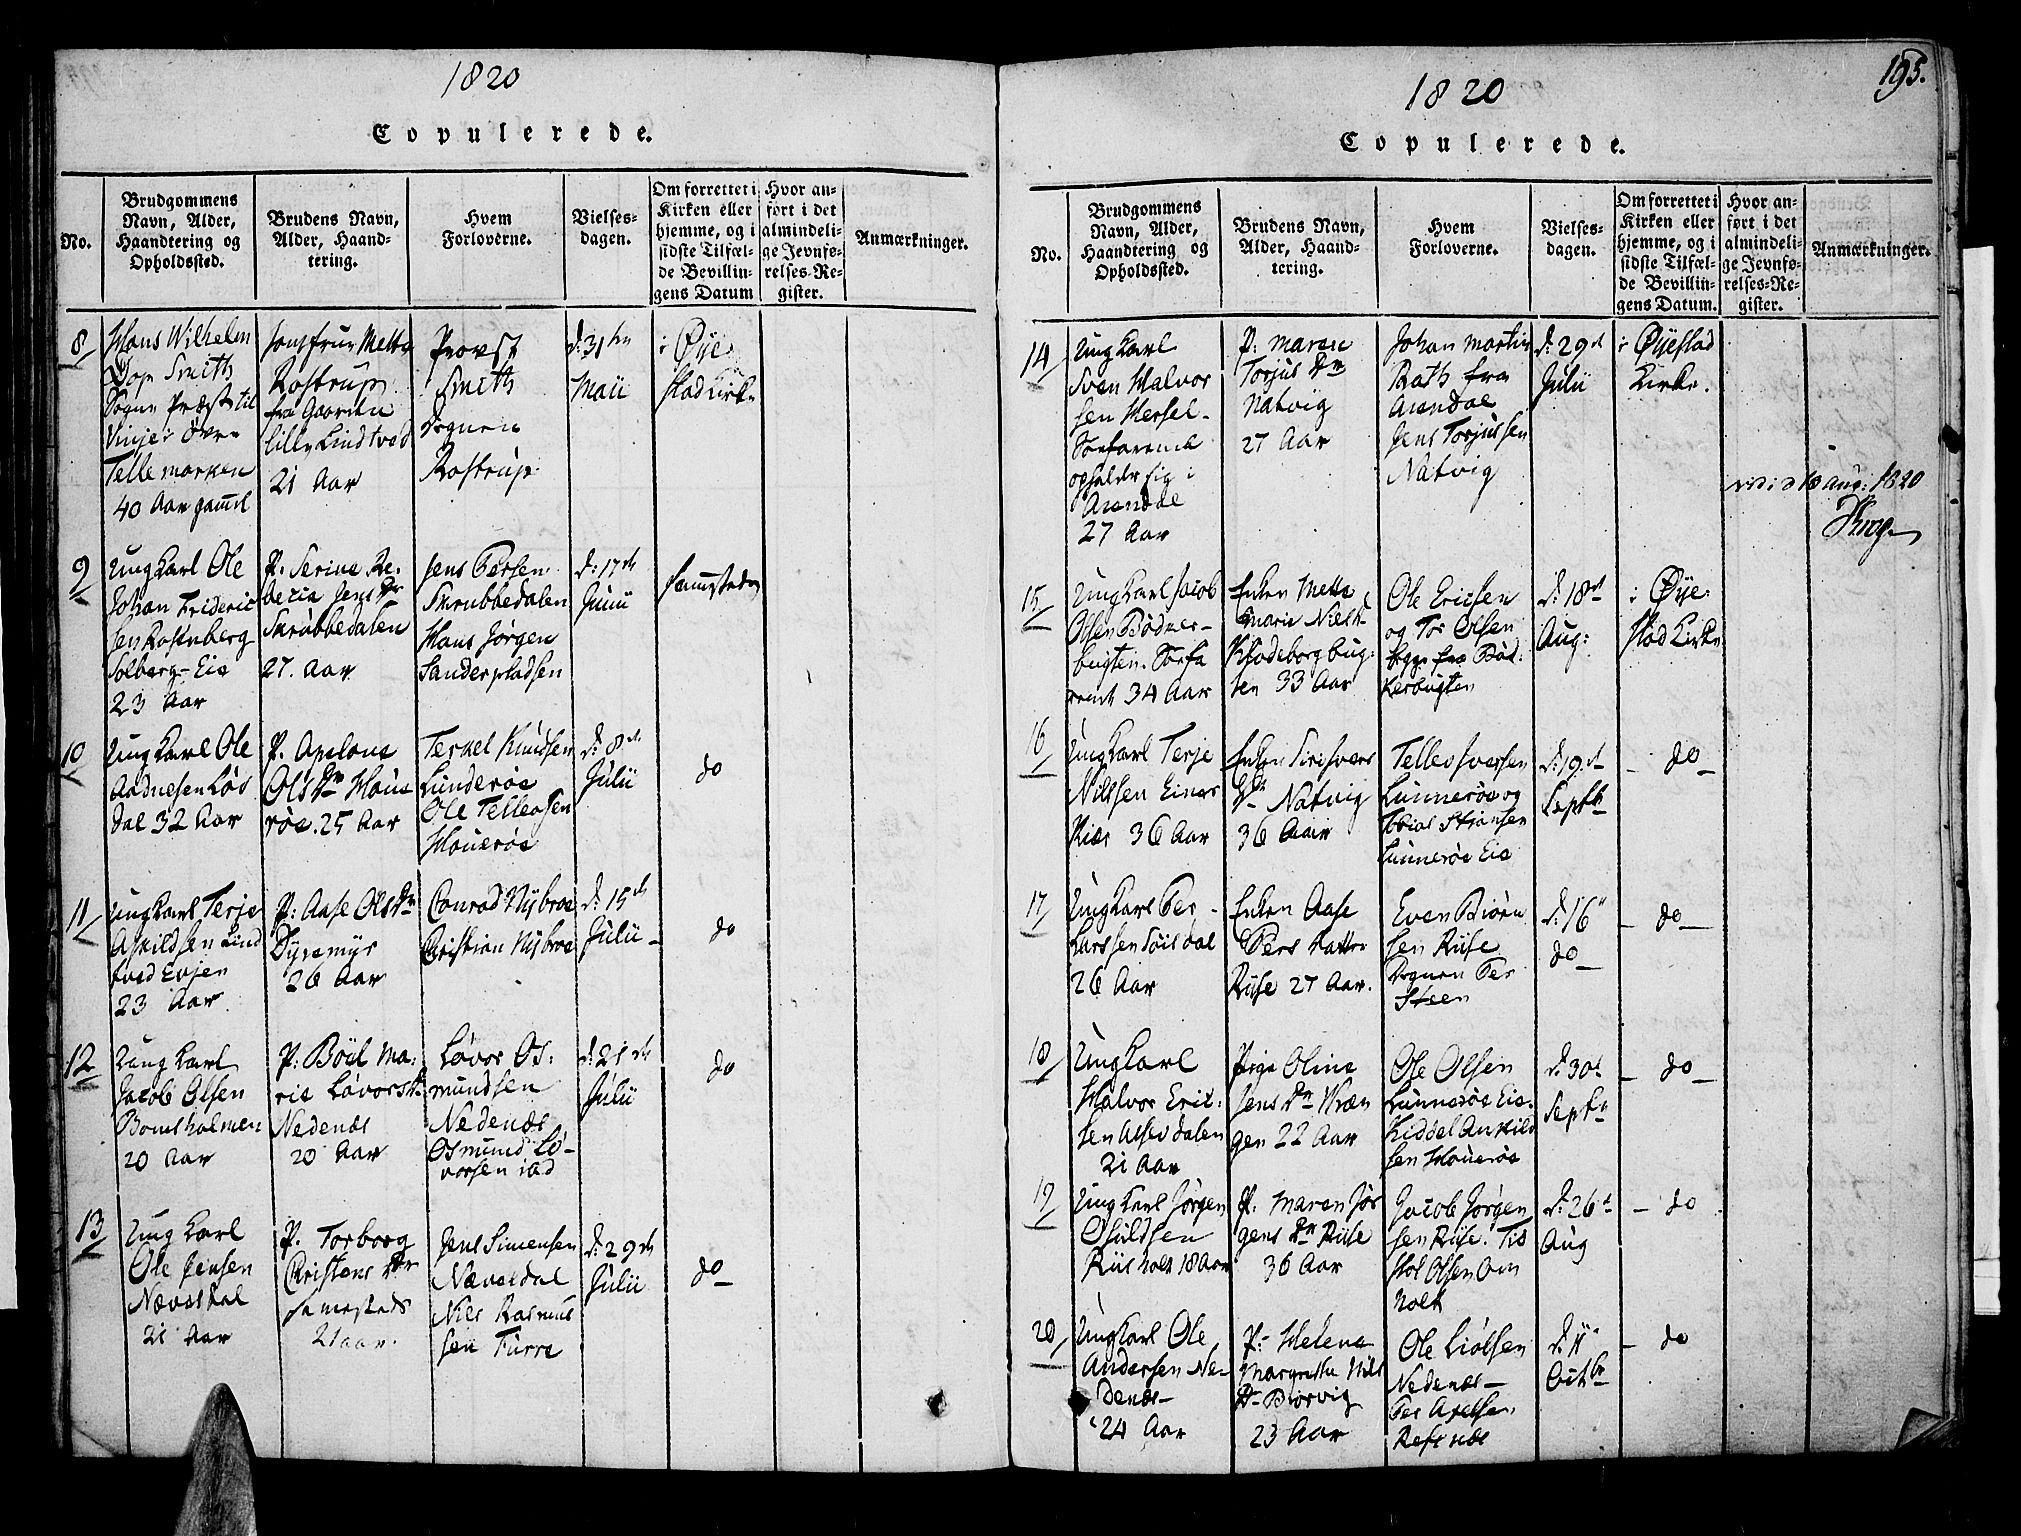 1820
Copulerede.
No.
Brudgommens
Navn, Alder,
Haandtering og
Opholdssted.
Brudens Navn,
Alder, Haand-
tering.
Hvem
Forloverne.
Vielses-
dagen.
Om forrettet i
Kirken eller
hjemme, og i
sidste Tilfæl-
de Bevillin-
gens Datum
Hvor an-
ført i det
almindeli-
ge Jevnfø-
relses-Re-
gister.
Anmærkninger.
8
Hans Wilhelm
Smith
Sogne Præst til
Vinje i Övre
Tellemarken
40 Aar gamel
Jomfrue Mette
Rostrup
fra Gaarden
Lille Lindtved
21 Aar
Provst
Smith
Rostrup
d: 31te
Maii
i Øye
stad Kirke
9
Ung Karl Ole
Johan Frideric
sen Rosenberg
Solberg Eie
23 Aar
P: Serine Re-
becca Jens Dr
Skrubbedalen
27. Aar
Jens Persen
Skrubbedalen
Hans Jørgen
Sanderpladsen
d: 17de
Junii
sammesteden
10
Ung Karl Ole
Aadnesen Løs
dal 32 Aar
P. Apelone
Ols Dr Houe
røe. 25 Aar
Terkel Knudsen
Lunderøe
Ole Tellevsen
Houerøe
d: 8de
Julii
do
11
Ung Karl Terje
Askildsen Lind
tved Evjen
23 Aar
P: Aase Ols Dr
Dyremyr
26 Aar
Conrad Nybroe
Christian Nybroe
d: 15de
Julii
do
12
Ung Karl
Jacob Olsen
Bomsholmen
20 Aar
P: Böel Ma-
rie Løvors Dr
Nedenæs
20 Aar
Løvor Os-
mundsen
Nedenæs
Osmund Lø-
vorsen ibd
d: 21de
Julii
do
13
Ung Karl
Ole Jensen
Næversdal
21 Aar
P. Torborg
Christens Dr
sammesteds
21 aar.
Jens Simensen
Næverdal
Niels Rasmus
sen Furre
d: 29de
Julii
do
1820
195.
Copulerede.
No.
Brudgommens
Navn, Alder,
Haandtering og
Opholdssted.
Brudens Navn,
Alder, Haand-
tering.
Hvem
Forloverne.
Vielses-
dagen.
Om forrettet i
Kirken eller
hjemme, og i
sidste Tilfæl-
de Bevillin-
gens Datum.
Hvor an-
ført i det
almindeli-
ge Jevnfø-
relses-Re-
gister.
Anmærkninger.
14
Ung Karl
Sven Halvor
sen Hersel-
Søefarende
opholder sig i
Arendal
27 Aar
P: Maren
Torjus Dr
Natvig
27 Aar
Johan Martin
Rath fra
Arendal
Jens Torjussen
Natvig
d: 29de
Julii
i Øyestad
Kirke.
vidi d 18 Aug: 1820
15
Ung Karl Jacob
Olsen Bödker-
bugten. Søefa
rende 34 Aar
Enken Mette
Marie Niels D
Kloдeborg bug-
ten 33 Aar
Ole Ericsen
og Tor Olsen
begge fra Böd-
kerbugten
d: 18de
Aug:
i Øye
stad Kirke
16
Ung Karl Terje
Nilssen Einer
Kiær 36 Aar
Enken Siri Ivers
Dr Natvig
36 Aar
Tellev Iversen
Lunnerøe og
Tobias Steensen
Lunnerøe Eie
d: 19de
Septbr
do
17
Ung Karl Per
Larssen Löisdal
26 Aar
Enken Aase
Pers Datter
Rüse 27 Aar.
Even Biørn
sen Rüse
Per
Steen
d: 16
do
do
18
Ung Karl
Halvor Eric-
sen Assevdalen
21 Aar
Pige Oline
Jens Dr Vræn
gen 22 Aar
Ole Olsen
Lunnerøe Eie.
Kiddel Anskild
sen Houerøe
d: 30de
Septbr
do
19
Ung Karl Jørgen
Osuldsen
Riisholt 18 Aar
P. Maren Jør
gens Dr Rüse
36 Aar
Jacob Jørgen
sen Rüse. Tis
Olsen Om
holt
d: 26de
Aug
do
20
Ung Karl Ole
Andersen Ne-
denæs
24 Aar
P: Helene
Margrethe Nils
Dr Biorvig
23 Aar
Ole Liølsen
Nedenæs
Per Axelsen
Refsnæs
d: 11
Octbr
do